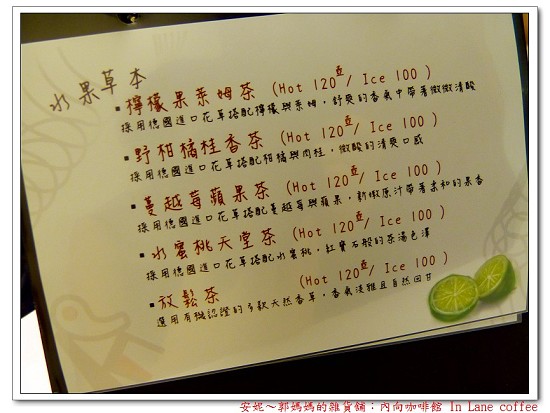 水果草本
▪檸檬果萊姆茶 (Hot 120壺/ Ice 100 )
採用德國進口花草搭配檸檬與萊姆，舒爽的香氣中帶著微微清酸
▪野柑橘桂香茶 (Hot 120壺/ Ice 100 )
採用德國進口花草搭配柑橘與肉桂，微酸的清爽口感
▪蔓越莓蘋果茶 (Hot 120壺/ Ice 100 )
採用德國進口花草搭配蔓越莓與蘋果，新嫩原汁帶著柔和的果香
▪水蜜桃天堂茶 (Hot 120壺/ Ice 100 )
採用德國進口花草搭配水蜜桃，紅寶石般的茶湯色澤
▪放鬆茶 (Hot 120壺/ Ice 100 )
選用有機認證的多款天然香草，香氣淡雅且自然回甘
安妮～郭媽媽的雜貨舖：內向咖啡館 In Lane coffee